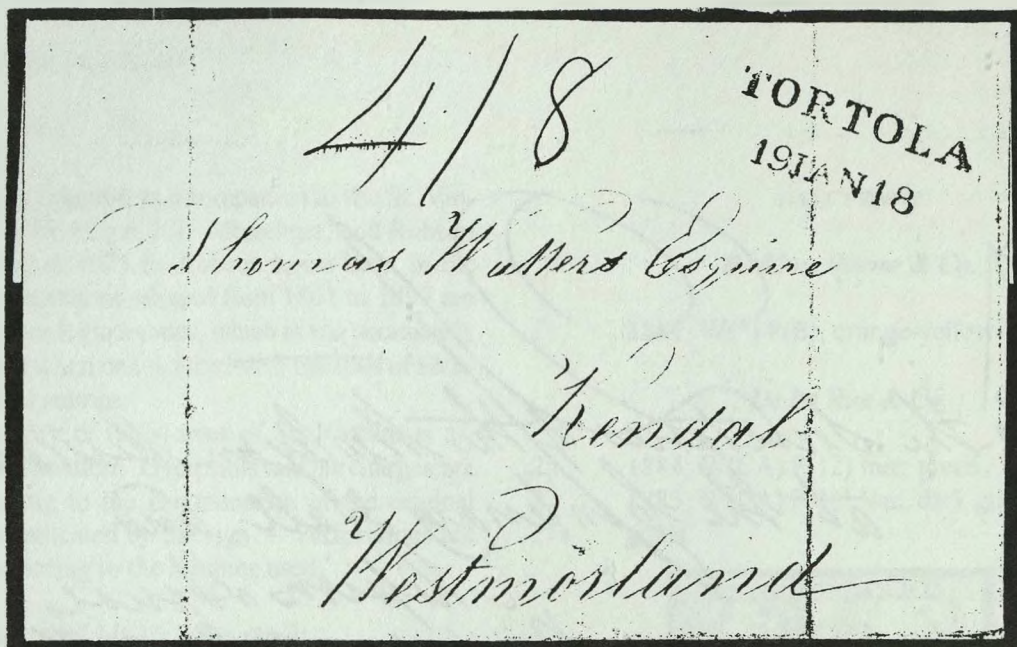 4/8
TORTOLA
19JAN18
Thomas Walters Esquire
Kendal
Westmorland